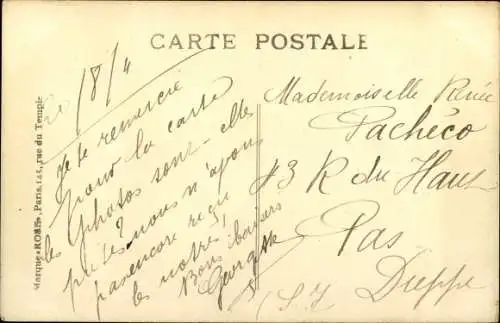 CARTE POSTALE
18/4
Je te remercie
pour la carte
les photos sont-elles
prêtes? nous n'avons
pas encore reçu
les notres,
Bons baisers
Georgette
Mademoiselle Renée
Pachéco
43 R du Haut
Pas
Dieppe
(S. I)
Marque «ROSE», Paris, 145, rue du Temple